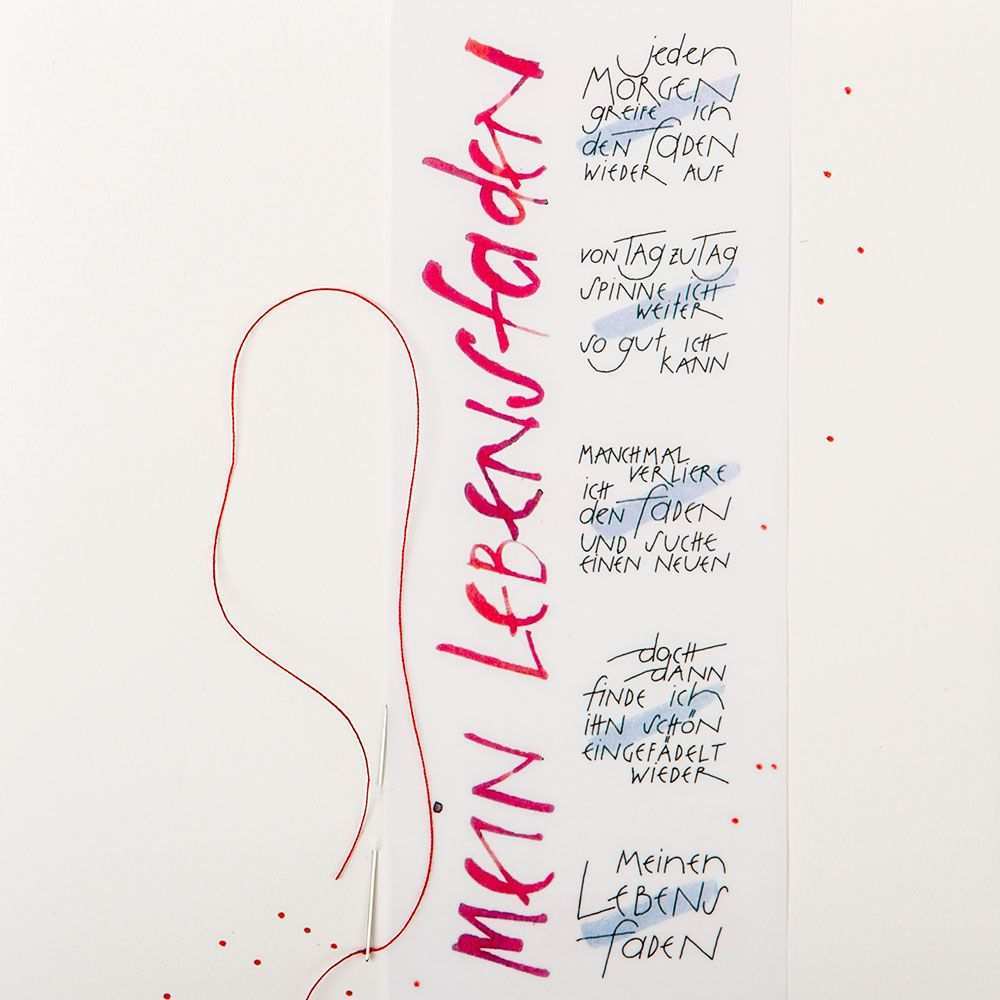 MEIN LEBENSfadEN
jeden
MORGEN
greife ich
den faden
WIEDER AUF
VON TAg zu TAg
SPINNE ICH
WEITER
so gut ICH
KANN
MANCHMAL
VERLIERE
ICH
den faDEN
UND SUCHE
EINEN NEUEN
doch
dANN
finde ich
IHN SCHÖN
EINGEFÄDELT
WIEDER
Meinen
LEBENS
faDEN